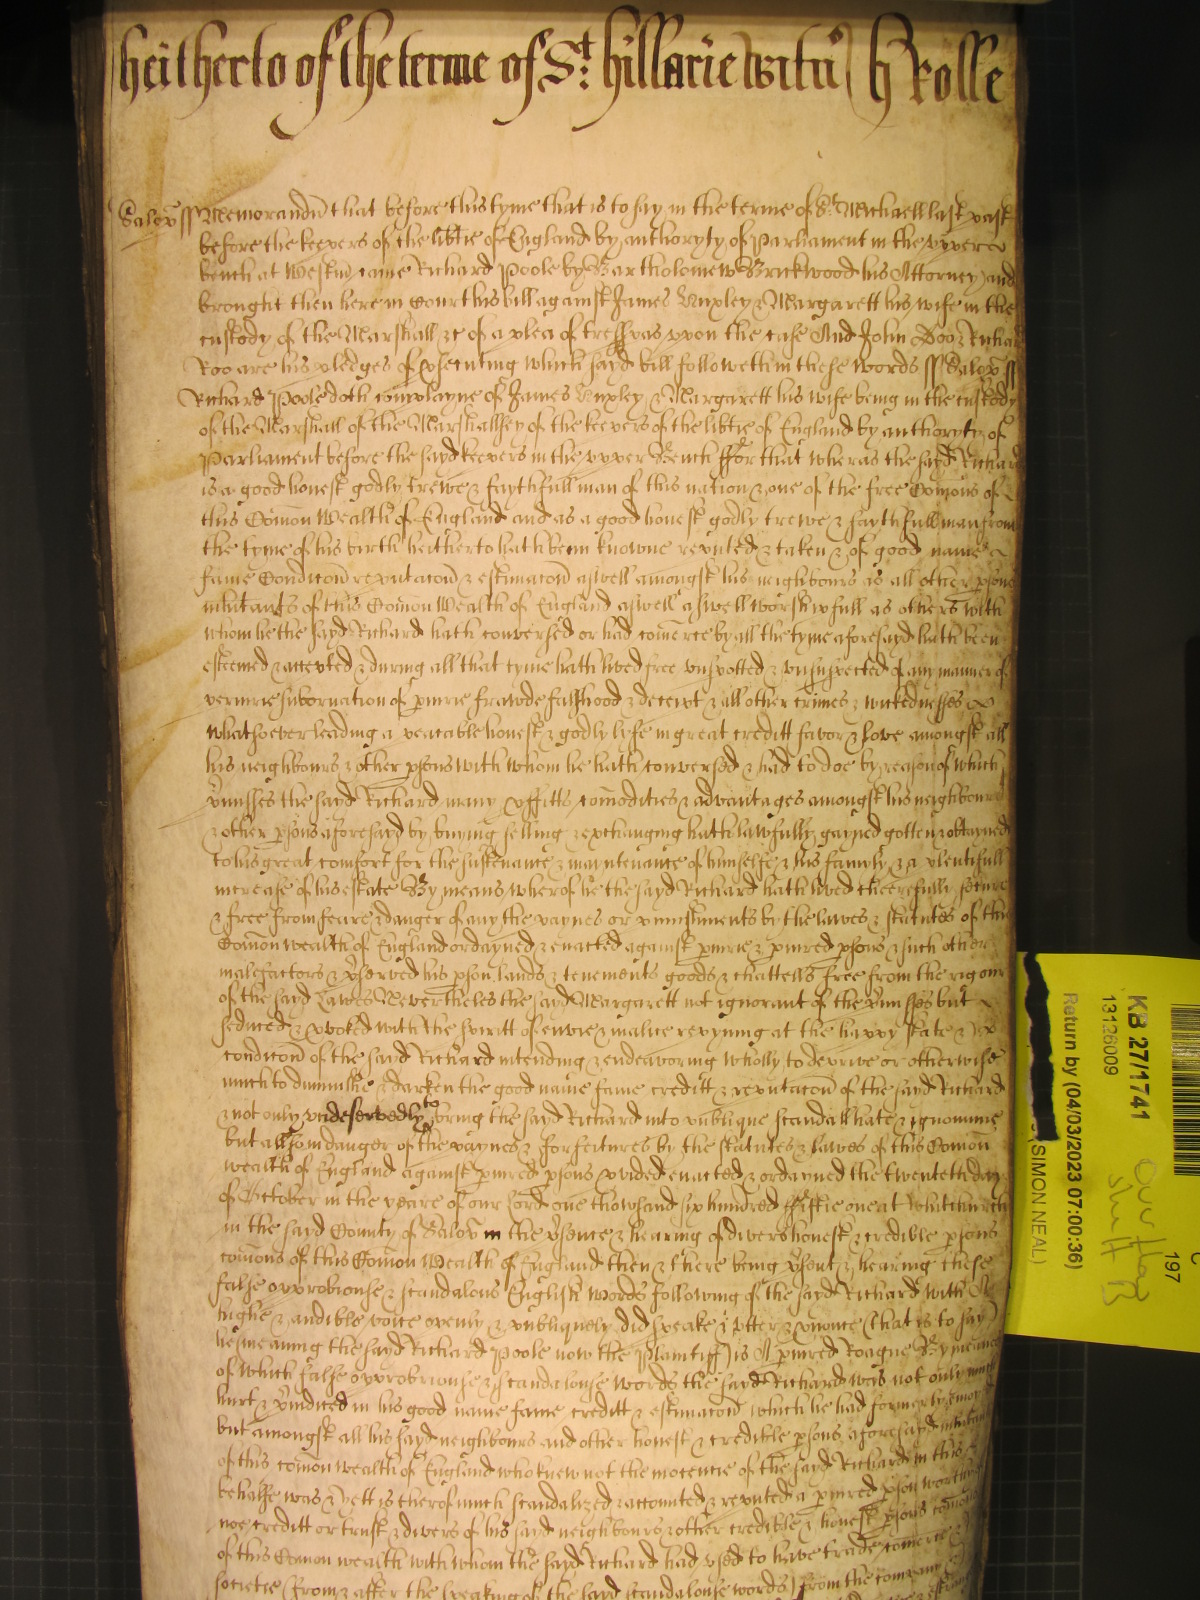 heitherto of the terme of St: hillarie witn h Rolle
Salop ss Memorandu that before this tyme that is to say in the terme of St Michaell last past
before the keepers of the libtie of England by authoryty of Parliament in the upper
bench at Westm came Richard Poole by Bartholomew Brickwood his Attorney and
brought then here in Court his bill against James Huxley & Margarett his wife in the
custody of the Marshall &c of a plea of tresspas upon the case And John Doo & Richard
Roo are his pledges of psecuting which sayd bill followeth in these words ss Salop ss
Richard Poole doth complayne of James Huxley & Margarett his wife being in the custody
of the Marshall of the Marshallsey of the keepers of the libtie of England by authoryty of
Parliament before the sayd keepers in the upper Bench ffor that wheras the sayd Richard
is a good honest godly trewe & faythfull man of this nation & one of the free Comons of
this Comon Wealth of England and as a good honest godly trewe & faythfull man from
the tyme of his birth heitherto hath been knowne reputed & taken & of good name
fame Condicon reputacon & estimacon aswell amongst his neighbours as all other psons
inhitants of this Comon Wealth of England aswell aswell worshipfull as others with
whom he the sayd Richard hath conversed or had comerce by all the tyme aforesayd hath been
esteemed & accepted & during all that tyme hath lived free unspotted & unsuspected of any manner of
periurie subornation of piurie frawde falshood & deceipt & all other crimes & wickednesses
whatsoever leading a peacable honest & godly lyfe in great creditt favor & love amongst all
his neighbours & other psons with whom he hath conversed & had to doe by reason of which
pmisses the sayd Richard many pffitts comodities & advantages amongst his neighbours
& other psons aforesayd by buying selling & exchanging hath lawfully gayned gotten & obtayned
to his great comfort for the sustenance & maintenance of himselfe & his family & a plentifull
increase of his estate By means wherof he the sayd Richard hath lived cheerefully secure
& free from feare & danger of any the paynes or punishments by the lawes & statutes of this
Comon wealth of England ordayned & enacted against piurie & piured psons & such other
malefactors & pserved his pson lands & tenements goods & chattells free from the rigour
of the sayd Lawes Nevertheles the sayd Margarett not ignorant of the pmisses but
seduced & pvoked with the spiritt of envie & malice repyning at the happy state &
condicon of the sayd Richard intending & endeavoring wholly to deprive or otherwise
much to diminishe & darken the good name fame creditt & reputacon of the sayd Richard
& not only undeservedly to bring the sayd Richard into publique scandall hate & ignominie
but allso in danger of the paynes & forfeitures by the statutes & lawes of this Comon
wealth of England against piured psons pvided enacted & ordayned the twenteth day
of October in the yeare of our Lord one thowsand six hundred ffiftie one at Whitchurch
in the sayd County of Salop in the psence & hearing of divers honest & credible psons
comons of this Comon Wealth of England then & there being psent & hearing these
false opprobriouse & scandalous English words following of the sayd Richard with
highe & audible voice openly & publiquely did speake utter & pnonce (that is to say)
he (meaning the sayd Richard Poole now the Plaintiff) is A piured Roague By means
of which false opprobriouse & scandalouse words the sayd Richard was not only much
hurt & pjudiced in his good name fame creditt & estimacon which he had formerly
but amongst all his sayd neighbours and other honest & credible psons aforesayd
of this comon wealth of England who knew not the inocencie of the sayd Richard in this
behalfe was & yett is therof much scandalized & accounted & reputed a piured pson worthy
noe creditt or trust & divers of his sayd neighbours & other credible & honest psons comons
of this Comon wealth with whom the sayd Richard had used to have trade comerce &
societie (from & after the speaking of the sayd scandalouse words) from the company
KB 27/1741
13126009
Return by (04/03/2023 07:00:36)
(SIMON NEAL)
197